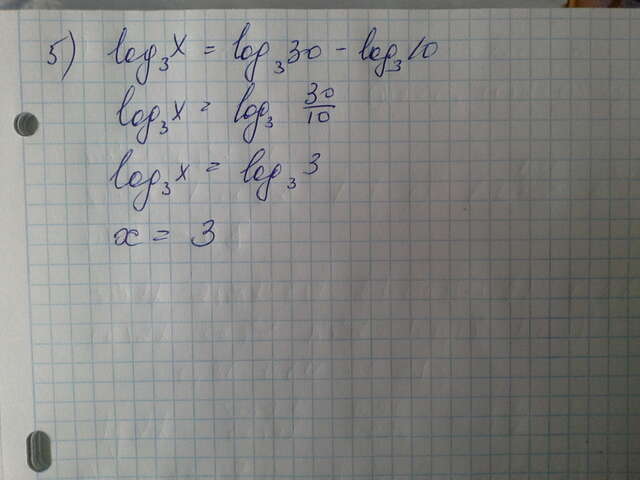 5) log₃x = log₃30 - log₃10
log₃x = log₃ 30/10
log₃x = log₃3
x = 3